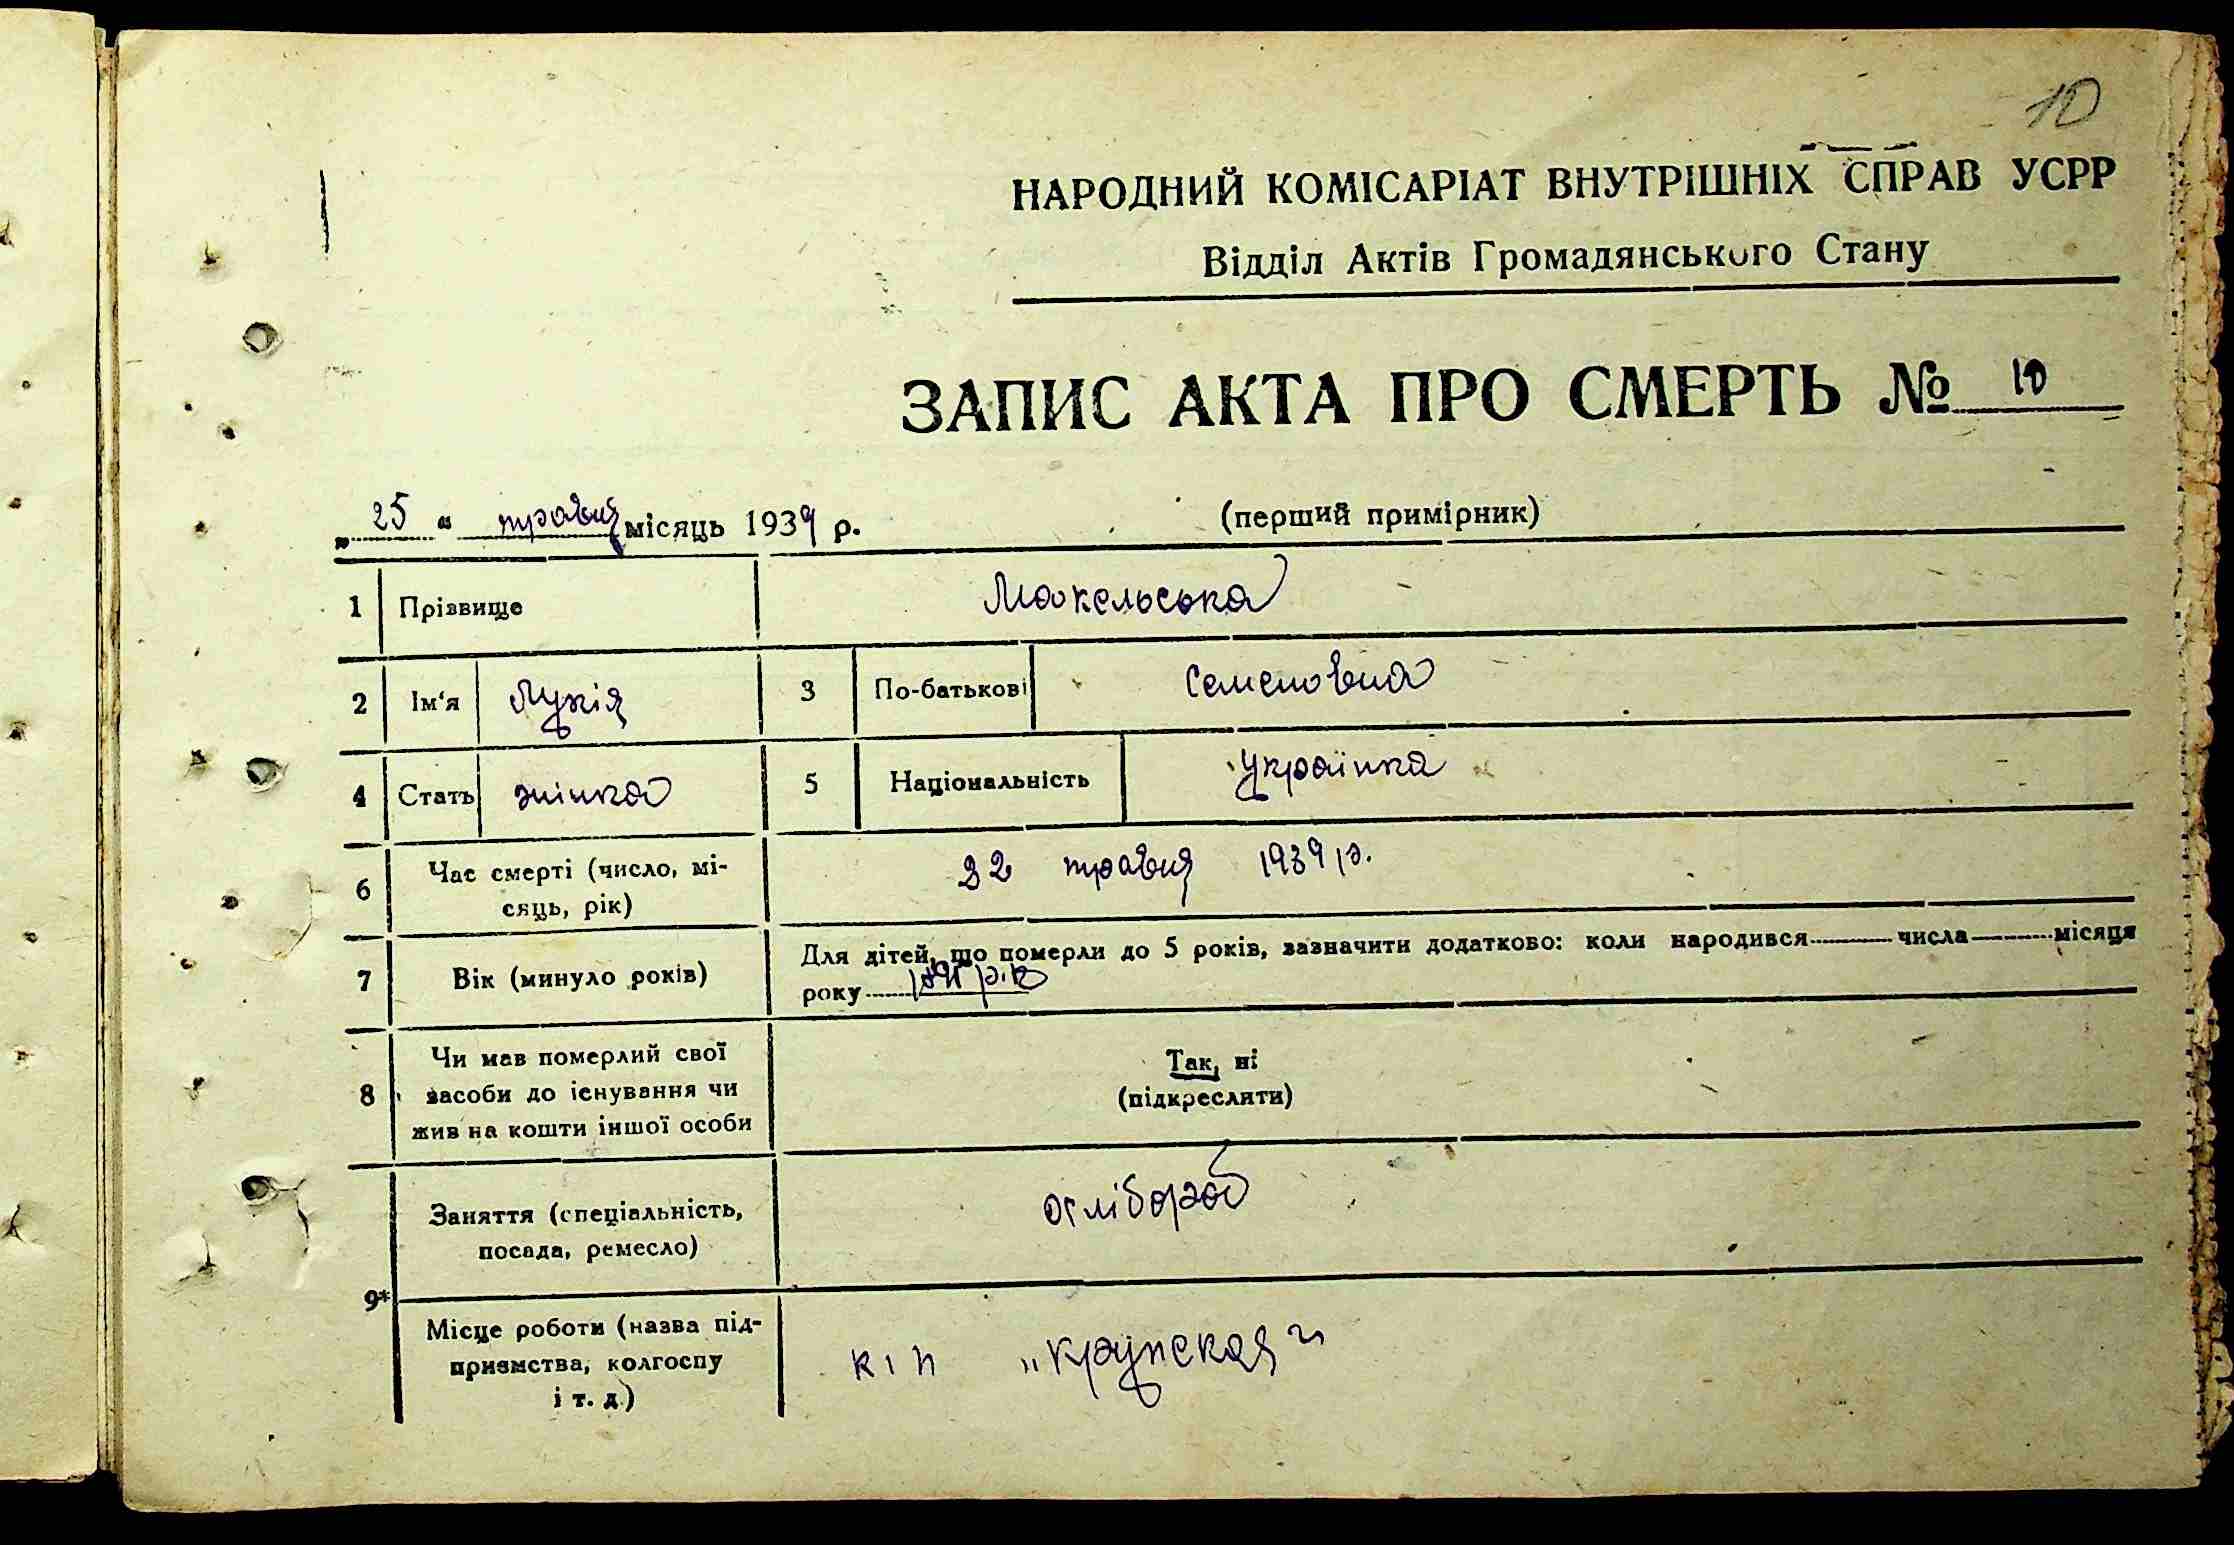 10
НАРОДНИЙ КОМІСАРІАТ ВНУТРІШНІХ СПРАВ УСРР
Відділ Актів Громадянського Стану
ЗАПИС АКТА ПРО СМЕРТЬ № 10
„25“ травня місяць 1939 р. (перший примірник)
1 Прізвище Макельська
2 Ім'я Лукія 3 По-батькові Семеновна
4 Стать жінка 5 Національність українка
6 Час смерті (число, мі-
сяць, рік) 22 травня 1939 р.
7 Вік (минуло років) Для дітей, що померли до 5 років, зазначити додатково: коли народився числа місяця
року
8 Чи мав померлий свої
засоби до існування чи
жив на кошти іншої особи
Так, ні
(підкреслити)
9* Заняття (спеціальність,
посада, ремесло) хлібороб
Місце роботи (назва під-
приємства, колгоспу
і т. д.)
к і п „Крупская"